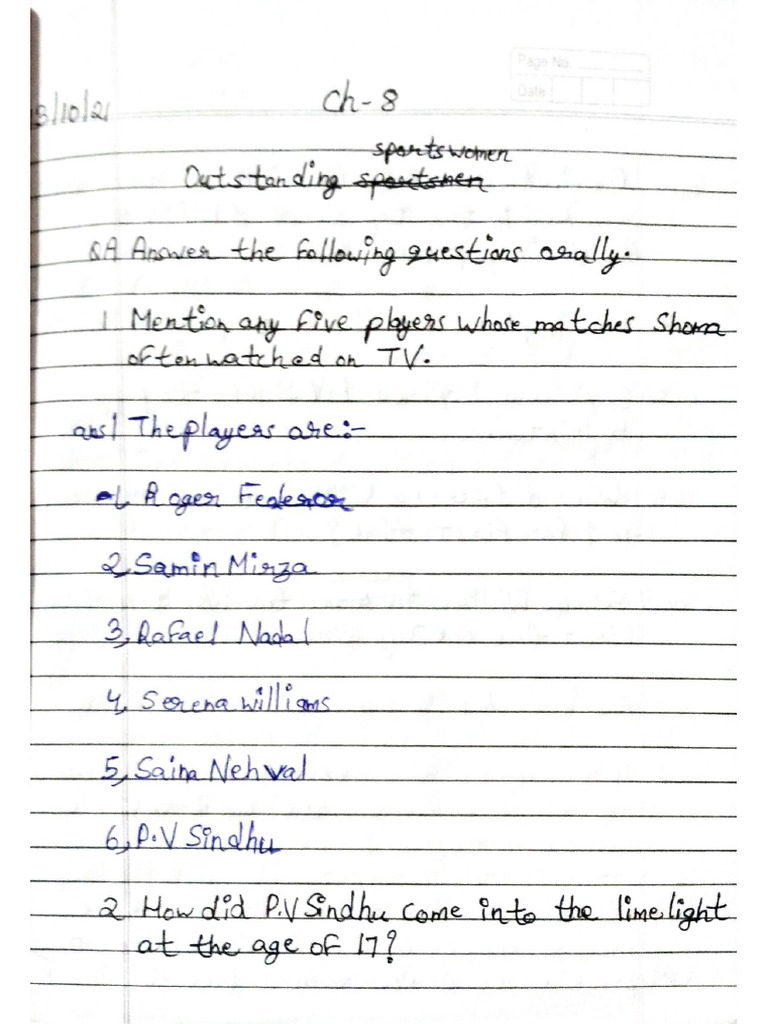 Page No.
Date
3/10/21
Ch-8
sportswomen
Outstanding sportsmen
QA Answer the following questions orally.
1 Mention any five players whose matches Shoma
often watched on TV.
ans1 The players are:-
1, Roger Federor
2, Samin Mirza
3, Rafael Nadal
4, Serena williams
5, Saina Nehval
6, P.V Sindhu
2 How did P.V Sindhu come into the limelight
at the age of 17?